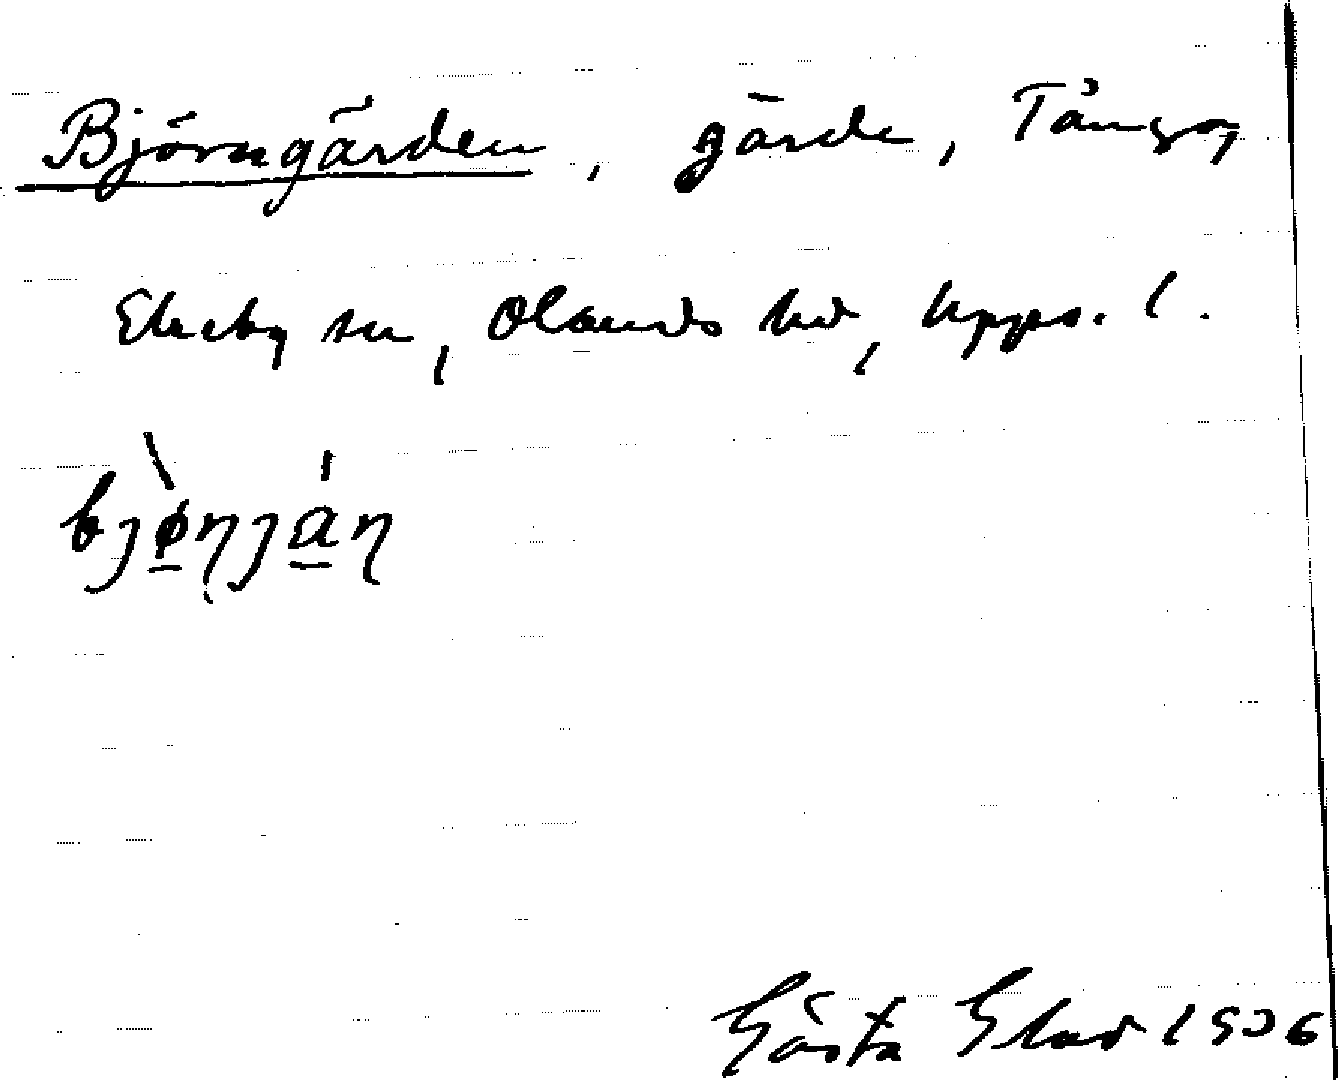 Björngärden, gärde, Tånga,
Ekeby sn, Olands hd, Upps. l.
bjø̀ṇján
Gösta Elar 1936